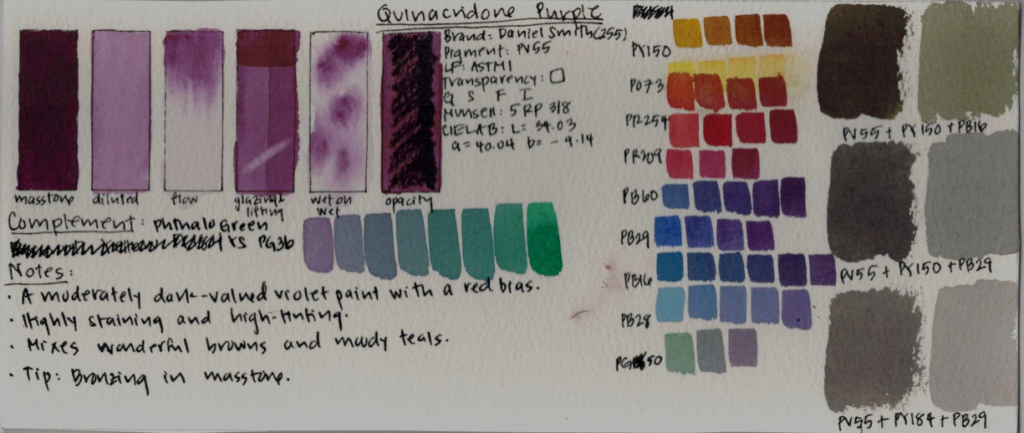 Quinacridone Purple
Brand: Daniel Smith (255)
Pigment: PV55
LF: ASTM I
Transparency:
Q S F I
Munsell: 5 RP 3/8
CIELAB: L= 34.03
a= 40.04 b= -9.14
masstone
diluted
flow
glazing &
lifting
wet on
wet
opacity
Complement: Phthalo Green
vs PG36
Notes:
· A moderately dark-valued violet paint with a red bias.
· Highly staining and high-tinting.
· Mixes wonderful browns and moody teals.
· Tip: Bronzing in masstone.
PY150
PO73
PR254
PR209
PB60
PB29
PB16
PB28
PG50
PV55 + PY150 + PB16
PV55 + PY150 + PB29
PV55 + PY184 + PB29